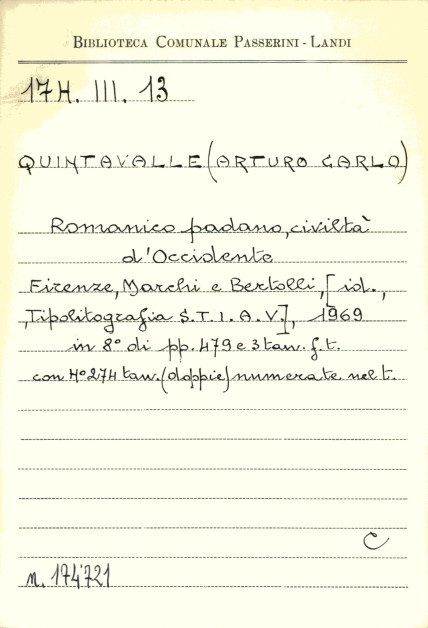 BIBLIOTECA COMUNALE PASSERINI - LANDI
17H. III. 13
QUINTAVALLE (ARTURO CARLO)
Romanico padano, civiltà
d'Occidente
Firenze, Marchi e Bertolli, [id.,
Tipolitografia S.T.I.A.V.], 1969
in 8° di pp. 479 e 3 tav. f.t.
con N° 274 tav. (doppie) numerate nel t.
C
n. 174721